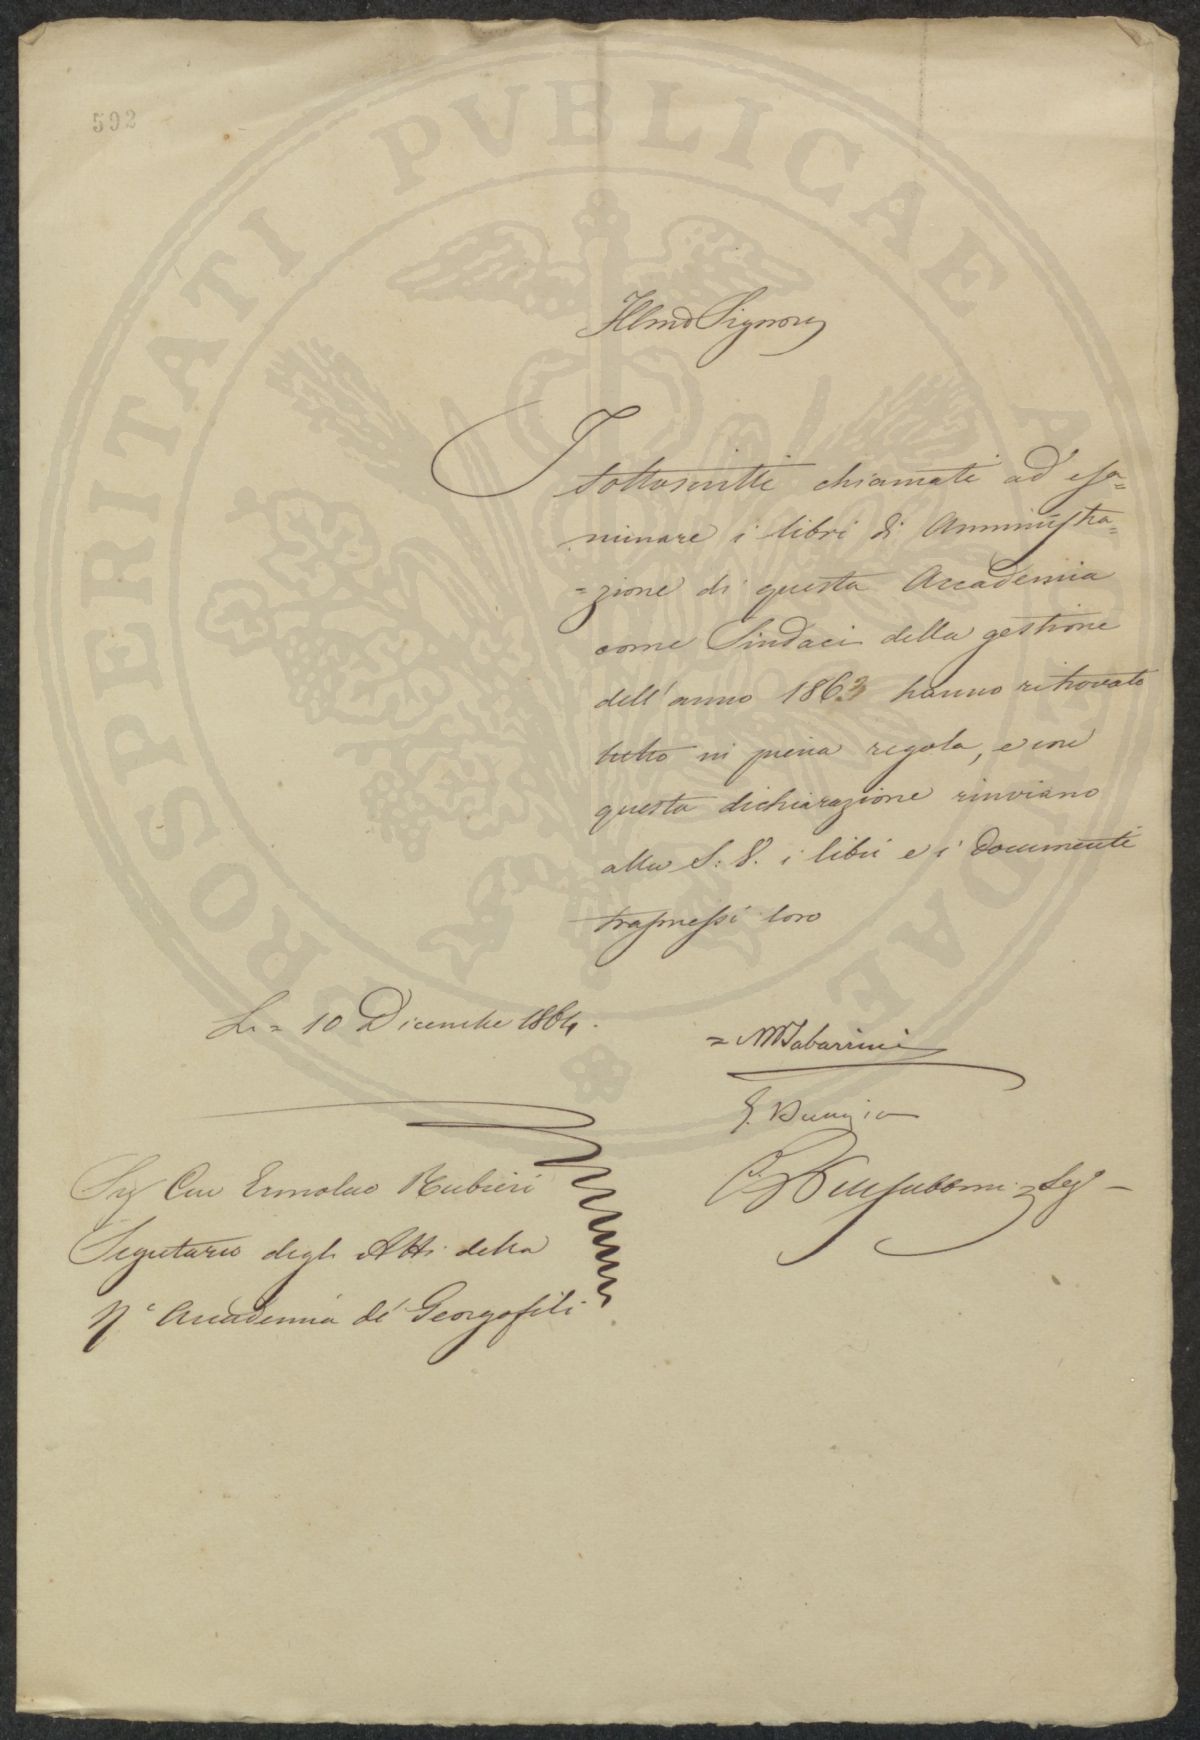 592
PROSPERITATI PVBLICAE AVGENDAE
Illmo Signore
I sottoscritti chiamati ad esa=
minare i libri di Amministra=
=zione di questa Accademia
come Sindaci della gestione
dell'anno 1863 hanno ritrovato
tutto in piena regola, e con
questa dichiarazione rinviano
alla S. V. i libri e i documenti
trasmessi loro
Li = 10 Dicembre 1864.
= M Tabarrini
Sig Cav Ermolao Rubieri
Segretario degli Atti della
R.e Accademia de' Georgofili